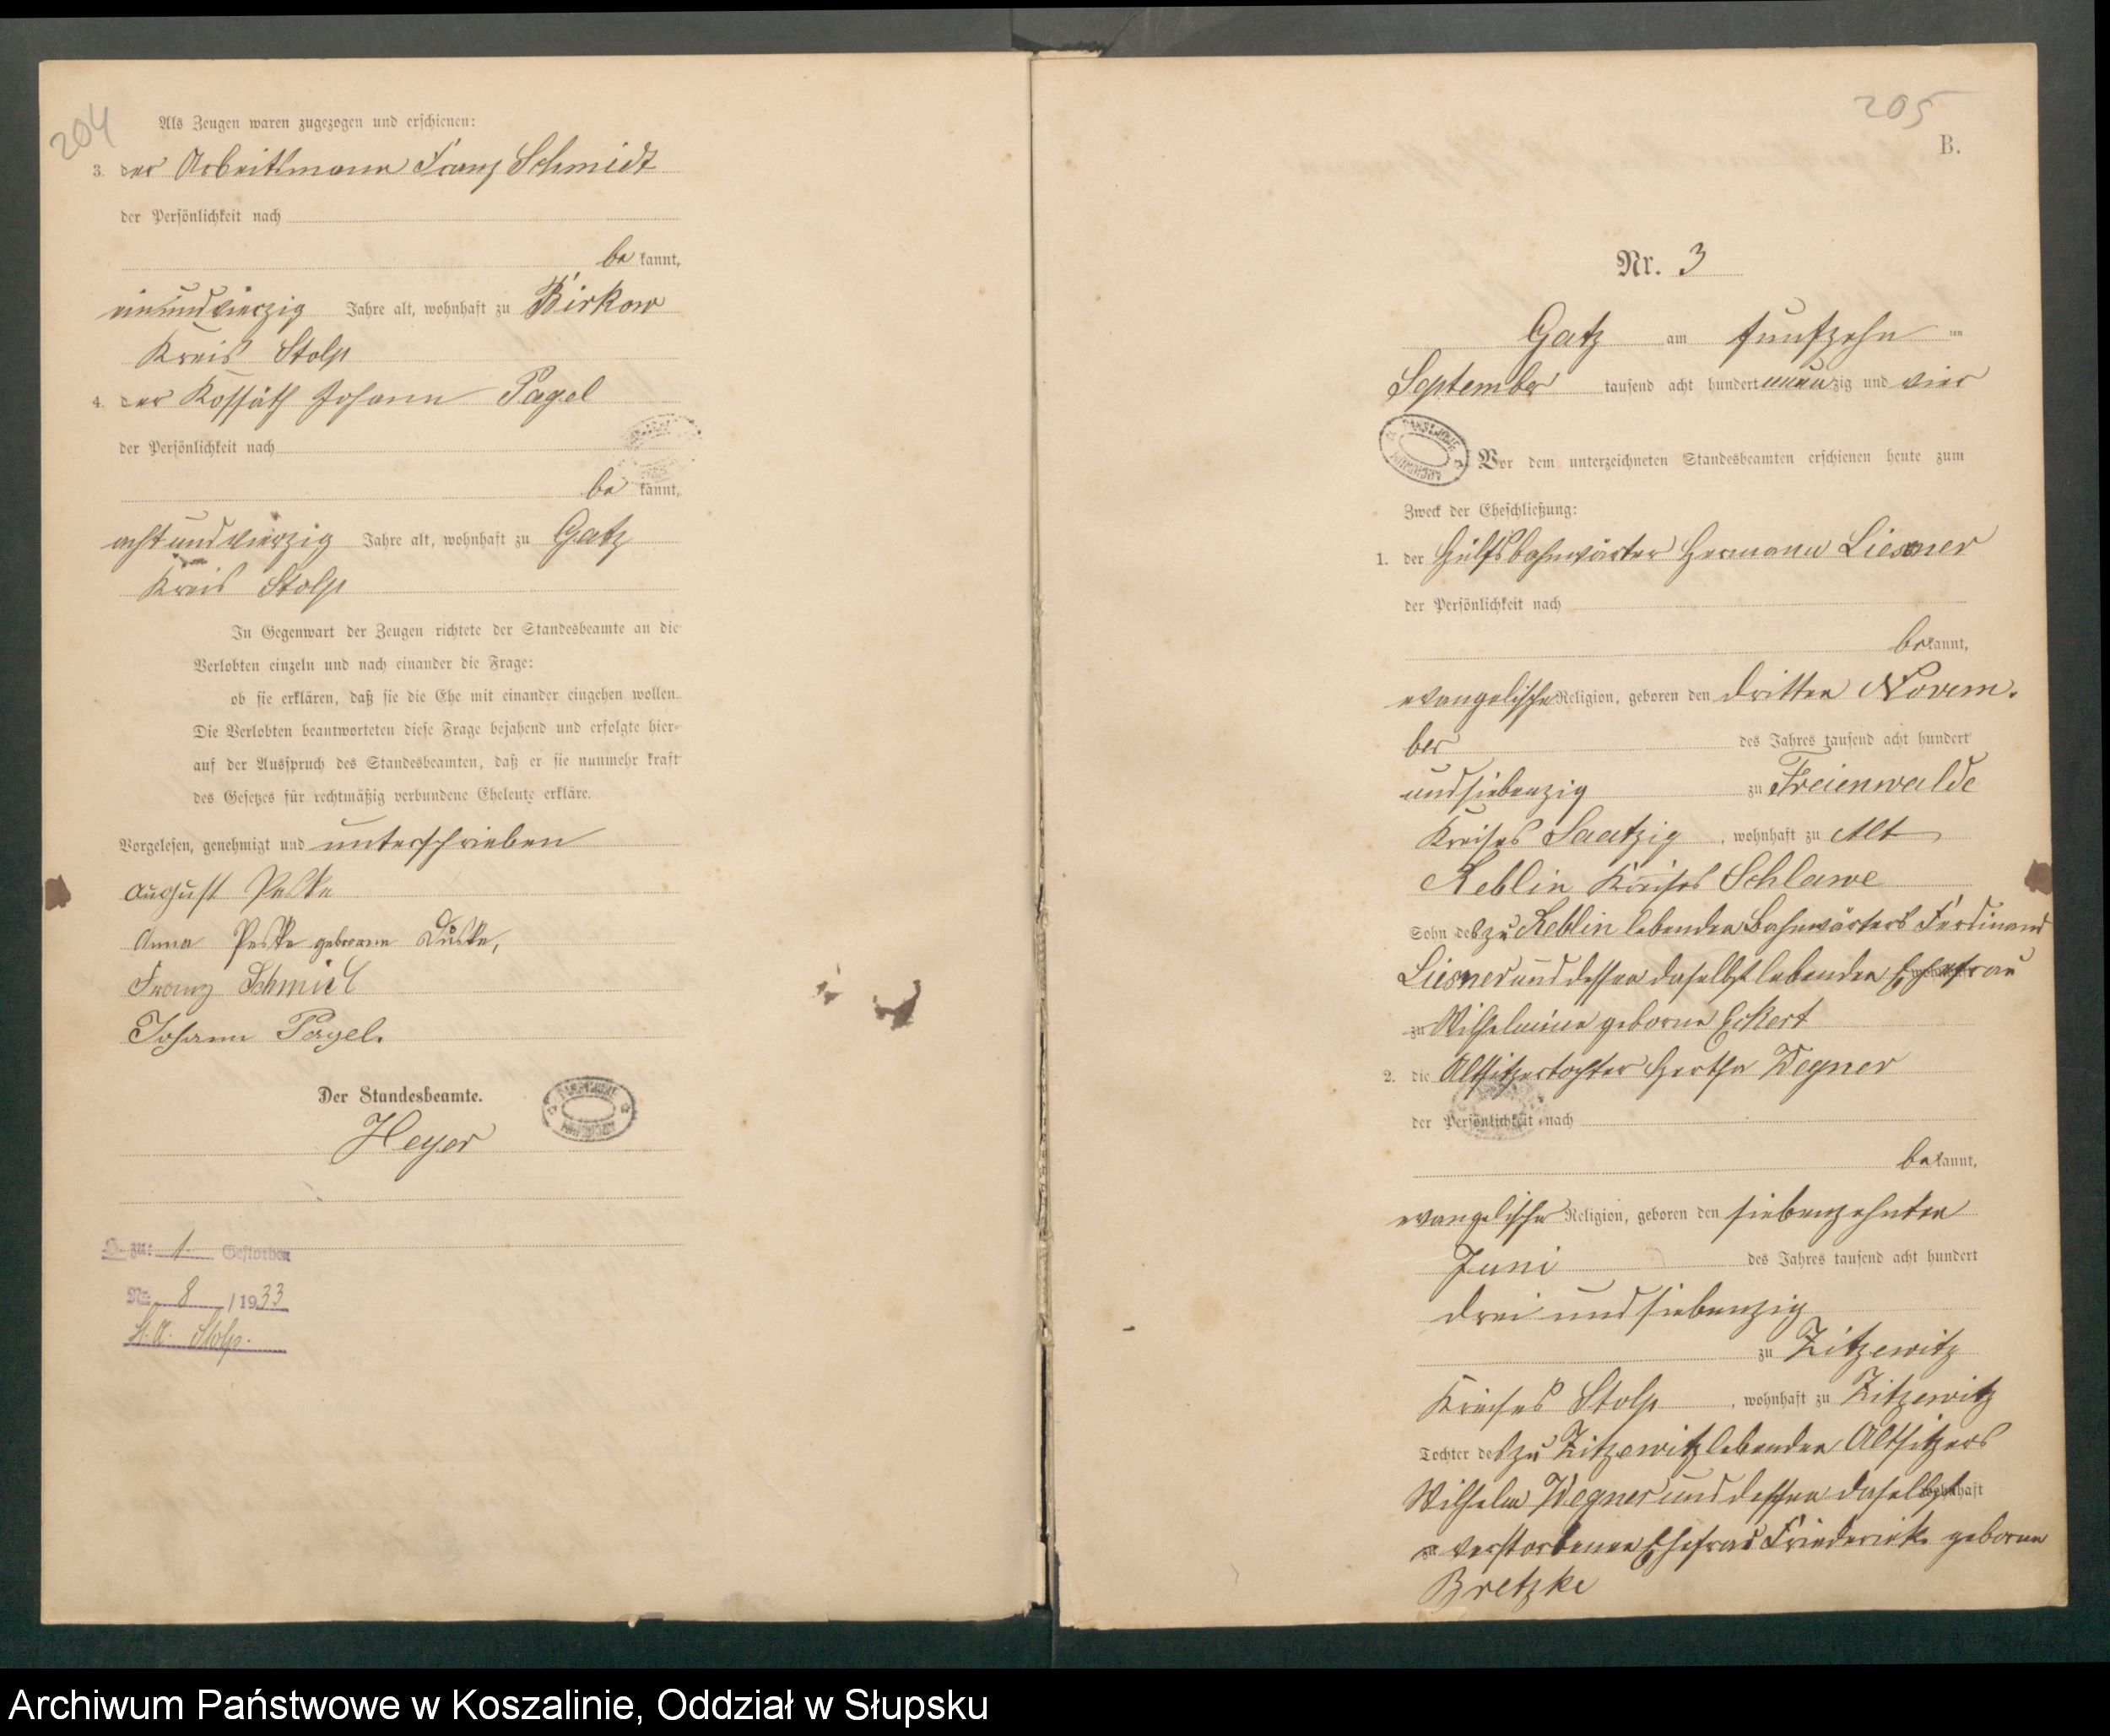 204
Als Zeugen waren zugezogen und erschienen:
3. der Arbeitsmann Franz Schmidt
der Persönlichkeit nach
be kannt,
einundvierzig Jahre alt, wohnhaft zu Birkow
Kreis Stolp
4. der Kossäth Johann Pagel
der Persönlichkeit nach
be kannt,
achtundvierzig Jahre alt, wohnhaft zu Gatz
Kreis Stolp
In Gegenwart der Zeugen richtete der Standesbeamte an die
Verlobten einzeln und nach einander die Frage:
ob sie erklären, daß sie die Ehe mit einander eingehen wollen.
Die Verlobten beantworteten diese Frage bejahend und erfolgte hier-
auf der Ausspruch des Standesbeamten, daß er sie nunmehr kraft
des Gesetzes für rechtmäßig verbundene Eheleute erkläre.
Vorgelesen, genehmigt und unterschrieben
August Peske
Anna Peske geborene
Franz Schmidt
Johann Pagel.
Der Standesbeamte.
Heyer
zu: 1. Gestorben
Nr. 8 / 1933
St. A. Stolp.
205
B.
Nr. 3
Gatz am fünfzehn ten
September tausend acht hundert neunzig und vier
Vor dem unterzeichneten Standesbeamten erschienen heute zum
Zweck der Eheschließung:
1. der Hülfsbahnwärter Hermann Liesner
der Persönlichkeit nach
bekannt,
evangelische Religion, geboren den dritten Novem-
ber des Jahres tausend acht hundert
undsiebenzig zu Freienwalde
Kreises Saatzig, wohnhaft zu Alt
Reblin Kreises Schlawe
Sohn des zu Reblin lebenden Bahnwärters Ferdinand
Liesner und dessen daselbst lebenden Ehefrau
zu Wilhelmine geborne Eckert
2. die Altsitzertochter Hertha Wegner
der Persönlichkeit nach
bekannt,
evangelische Religion, geboren den siebenzehnten
Juni des Jahres tausend acht hundert
drei und siebenzig
zu Zitzewitz
Kreises Stolp, wohnhaft zu Zitzewitz
Tochter des zu Zitzewitz lebenden Altsitzers
Wilhelm Wegner und dessen daselbst wohnhaft
verstorbenen Ehefrau Friederike geborne
Bretzke
Archiwum Państwowe w Koszalinie, Oddział w Słupsku